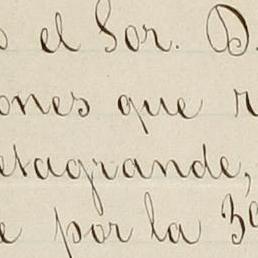 s el Sor. D.
ones que r
etagrande,
e por la 3ª